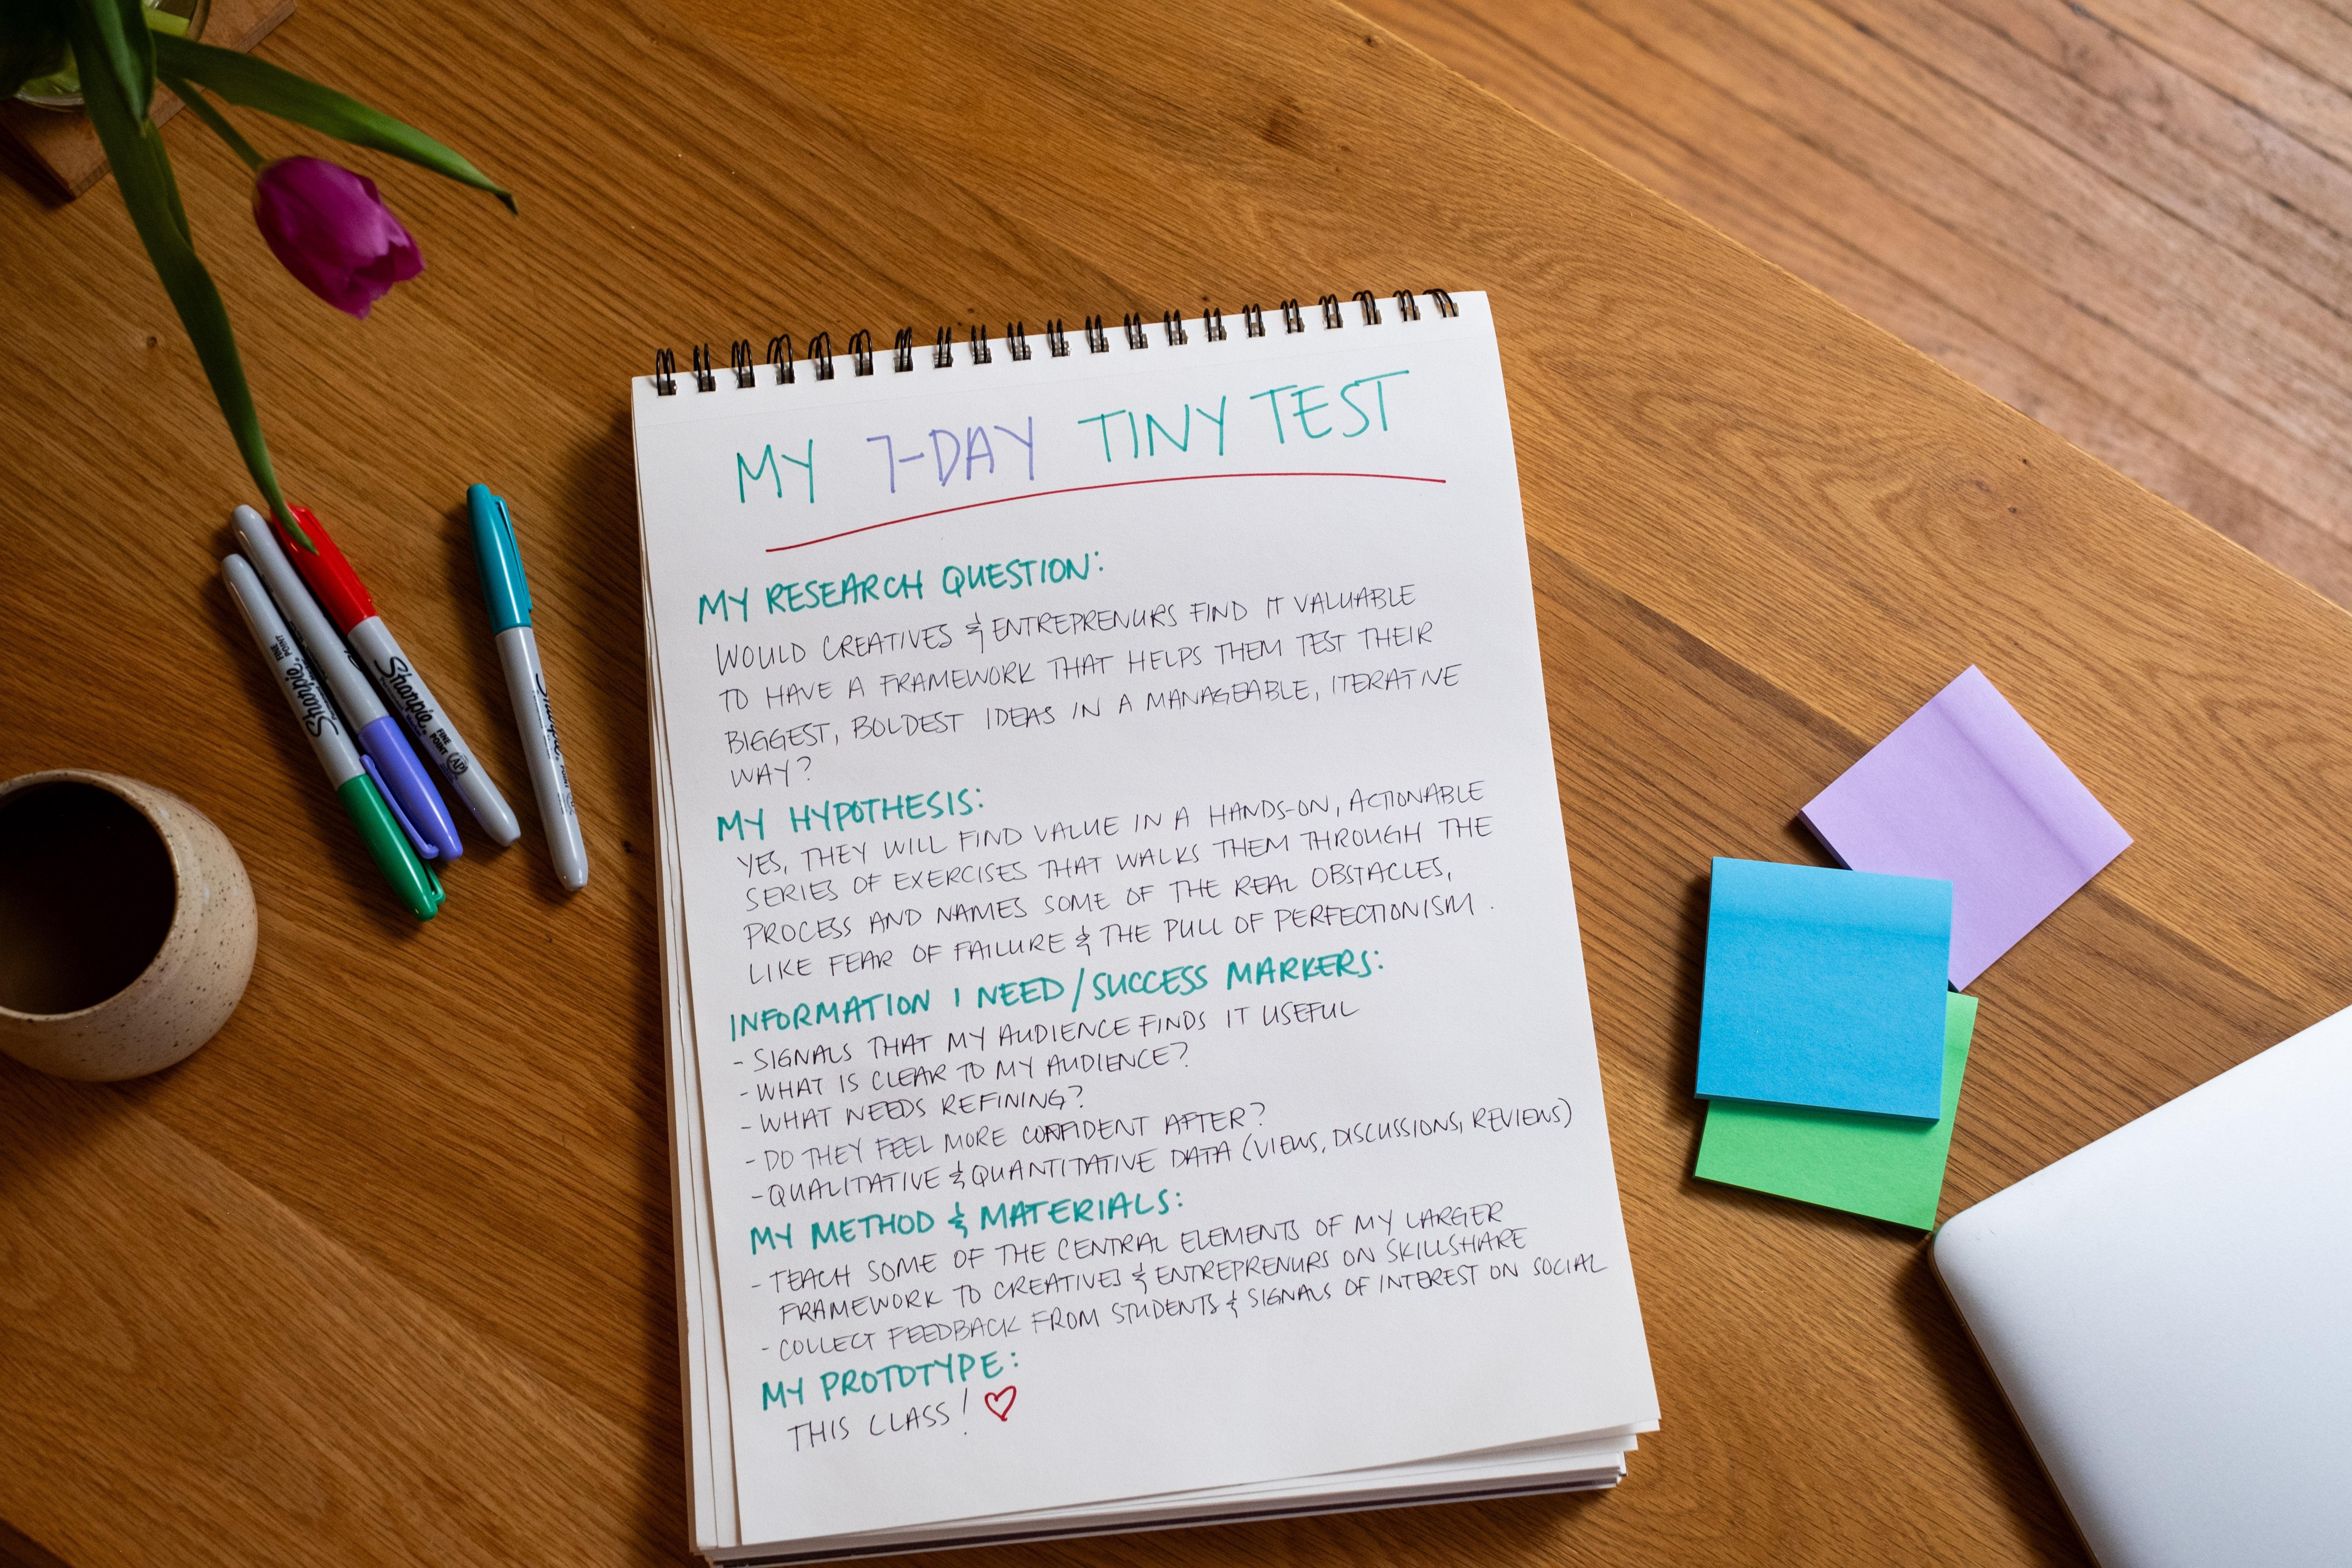 MY 7-DAY TINY TEST
MY RESEARCH QUESTION:
WOULD CREATIVES & ENTREPRENURS FIND IT VALUABLE
TO HAVE A FRAMEWORK THAT HELPS THEM TEST THEIR
BIGGEST, BOLDEST IDEAS IN A MANAGEABLE, ITERATIVE
WAY?
MY HYPOTHESIS:
YES, THEY WILL FIND VALUE IN A HANDS-ON, ACTIONABLE
SERIES OF EXERCISES THAT WALKS THEM THROUGH THE
PROCESS AND NAMES SOME OF THE REAL OBSTACLES,
LIKE FEAR OF FAILURE & THE PULL OF PERFECTIONISM.
INFORMATION I NEED/SUCCESS MARKERS:
- SIGNALS THAT MY AUDIENCE FINDS IT USEFUL
- WHAT IS CLEAR TO MY AUDIENCE?
- WHAT NEEDS REFINING?
- DO THEY FEEL MORE CONFIDENT AFTER?
- QUALITATIVE & QUANTITATIVE DATA (VIEWS, DISCUSSIONS, REVIEWS)
MY METHOD & MATERIALS:
- TEACH SOME OF THE CENTRAL ELEMENTS OF MY LARGER
FRAMEWORK TO CREATIVES & ENTREPRENURS ON SKILLSHARE
- COLLECT FEEDBACK FROM STUDENTS & SIGNALS OF INTEREST ON SOCIAL
MY PROTOTYPE:
THIS CLASS! ♡
Sharpie
FINE
POINT
Sharpie
FINE
POINT
AP
Sharpie